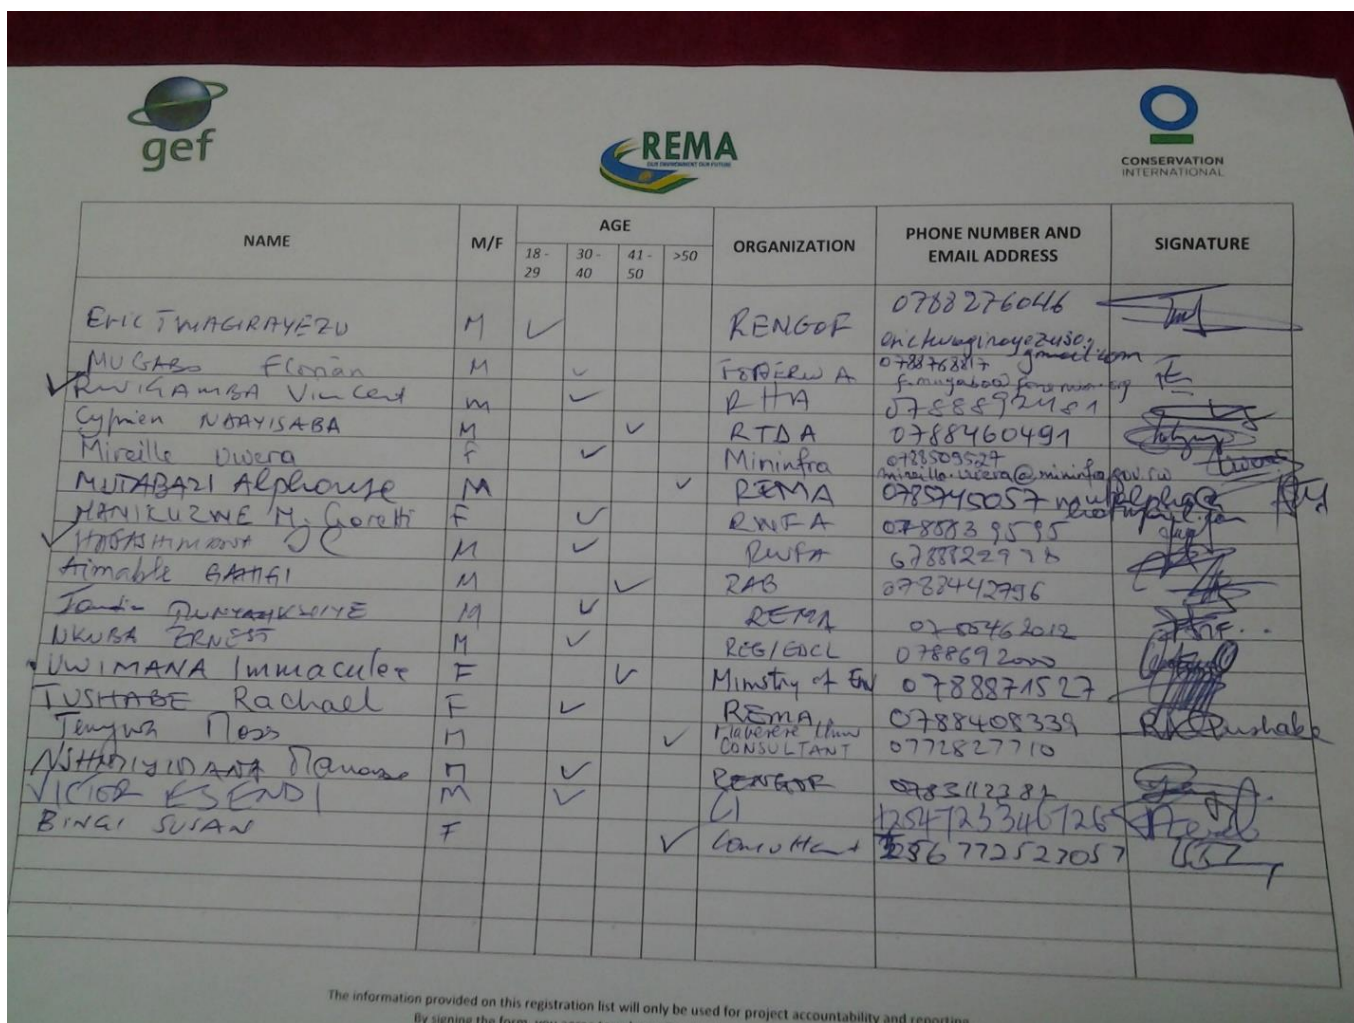 gef
REMA
OUR ENVIRONMENT OUR FUTURE
CONSERVATION
INTERNATIONAL
NAME M/F AGE ORGANIZATION PHONE NUMBER AND EMAIL ADDRESS SIGNATURE
18 - 29 30 - 40 41 - 50 >50
Eric TWAGIRAYEZU M ✓ RENGOF 0788276046
gmail.com
MUGABO Florian M ✓
✓ RWIGAMBA Vincent M ✓ RHA 0788892481
Cyprien NDAYISABA M ✓ RTDA 0788460491
Mireille Uwera F ✓ Mininfra 0788509527
mireille.uwera@mininfra.gov.rw
MUTABAZI Alphonse M ✓ REMA 0785745057
MANIKUZWE M. Goretti F ✓ RWFA 0788839595
✓ M ✓ RWFA
Aimable GAHIGI M ✓ RAB 0788442796
M ✓ REMA
NKUBA ERNEST M ✓ REG/EDCL 0788692000
UWIMANA Immaculee F ✓ Ministry of Env 0788871527
TUSHABE Rachael F ✓ REMA 0788408339
Tenywa Moses M ✓ CONSULTANT 0772827710
NSHIMIYIMANA Manasse M ✓ RENGOF 0783112381
VICTOR ESENDI M ✓ CI +254723346726
BINGI SUSAN F ✓ Consultant +256772527057
The information provided on this registration list will only be used for project accountability and reporting.
By signing the form, you